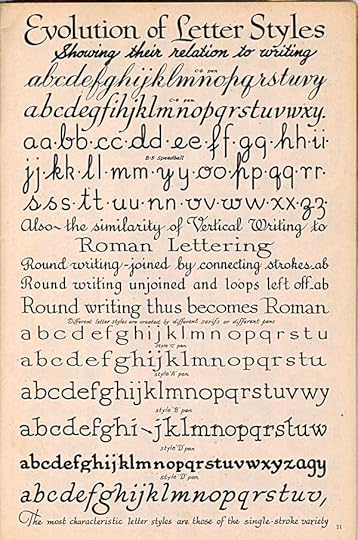 Evolution of Letter Styles
Showing their relation to writing
abcdefghijklmnopqrstuvy
C-6 pen
abcdegfihjklmnopqrstuvwxy.
C-6 pen
aa·bb·cc·dd·ee·ff·gg·hh·ii
B-5 Speedball
jj·kk·ll·mm·yy·oo·pp·qq·rr·
sss·tt·uu·nn·vv·ww·xx·zz
Also the similarity of Vertical Writing to
Roman Lettering
Round writing-joined by connecting strokes.ab
Round writing unjoined and loops left off.ab
Round writing thus becomes Roman
Different letter styles are created by different serifs or different pens
abcdefghijklmnopqrstu
style "C" pen
abcdefghijklmnopqrstu
style "A" pen
abcdefghijklmnopqrstuvwy
style "B" pen
abcdefghi-jklmnopqrstuw
style "D" pen
abcdefghijklmnopqrstuvwxyzagy
style "D" pen
abcdefghijklmnopqrstuv,
The most characteristic letter styles are those of the single-stroke variety
71